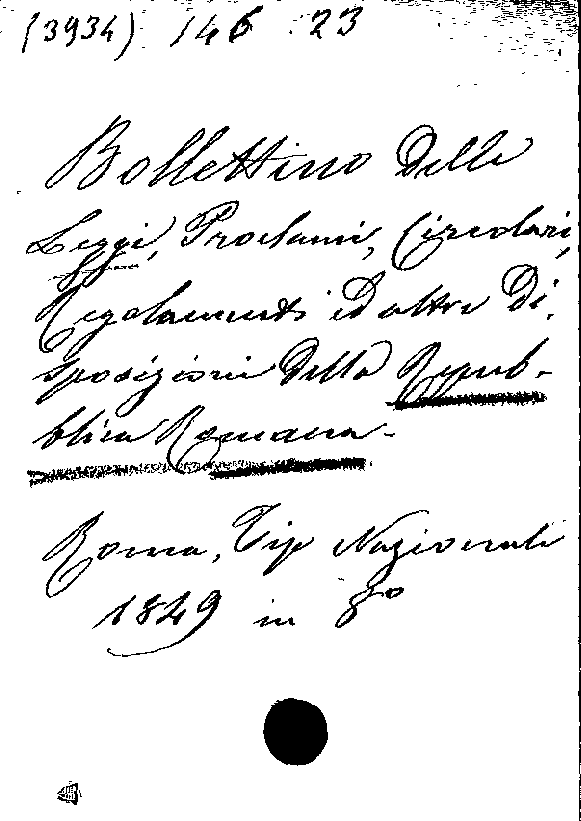 (3934) 146 23
Bollettino delle
Leggi, Proclami, Circolari,
Regolamenti ed altre Di-
sposizioni della Repub-
blica Romana.
Roma, Tip Nazionale
1849 in 8°